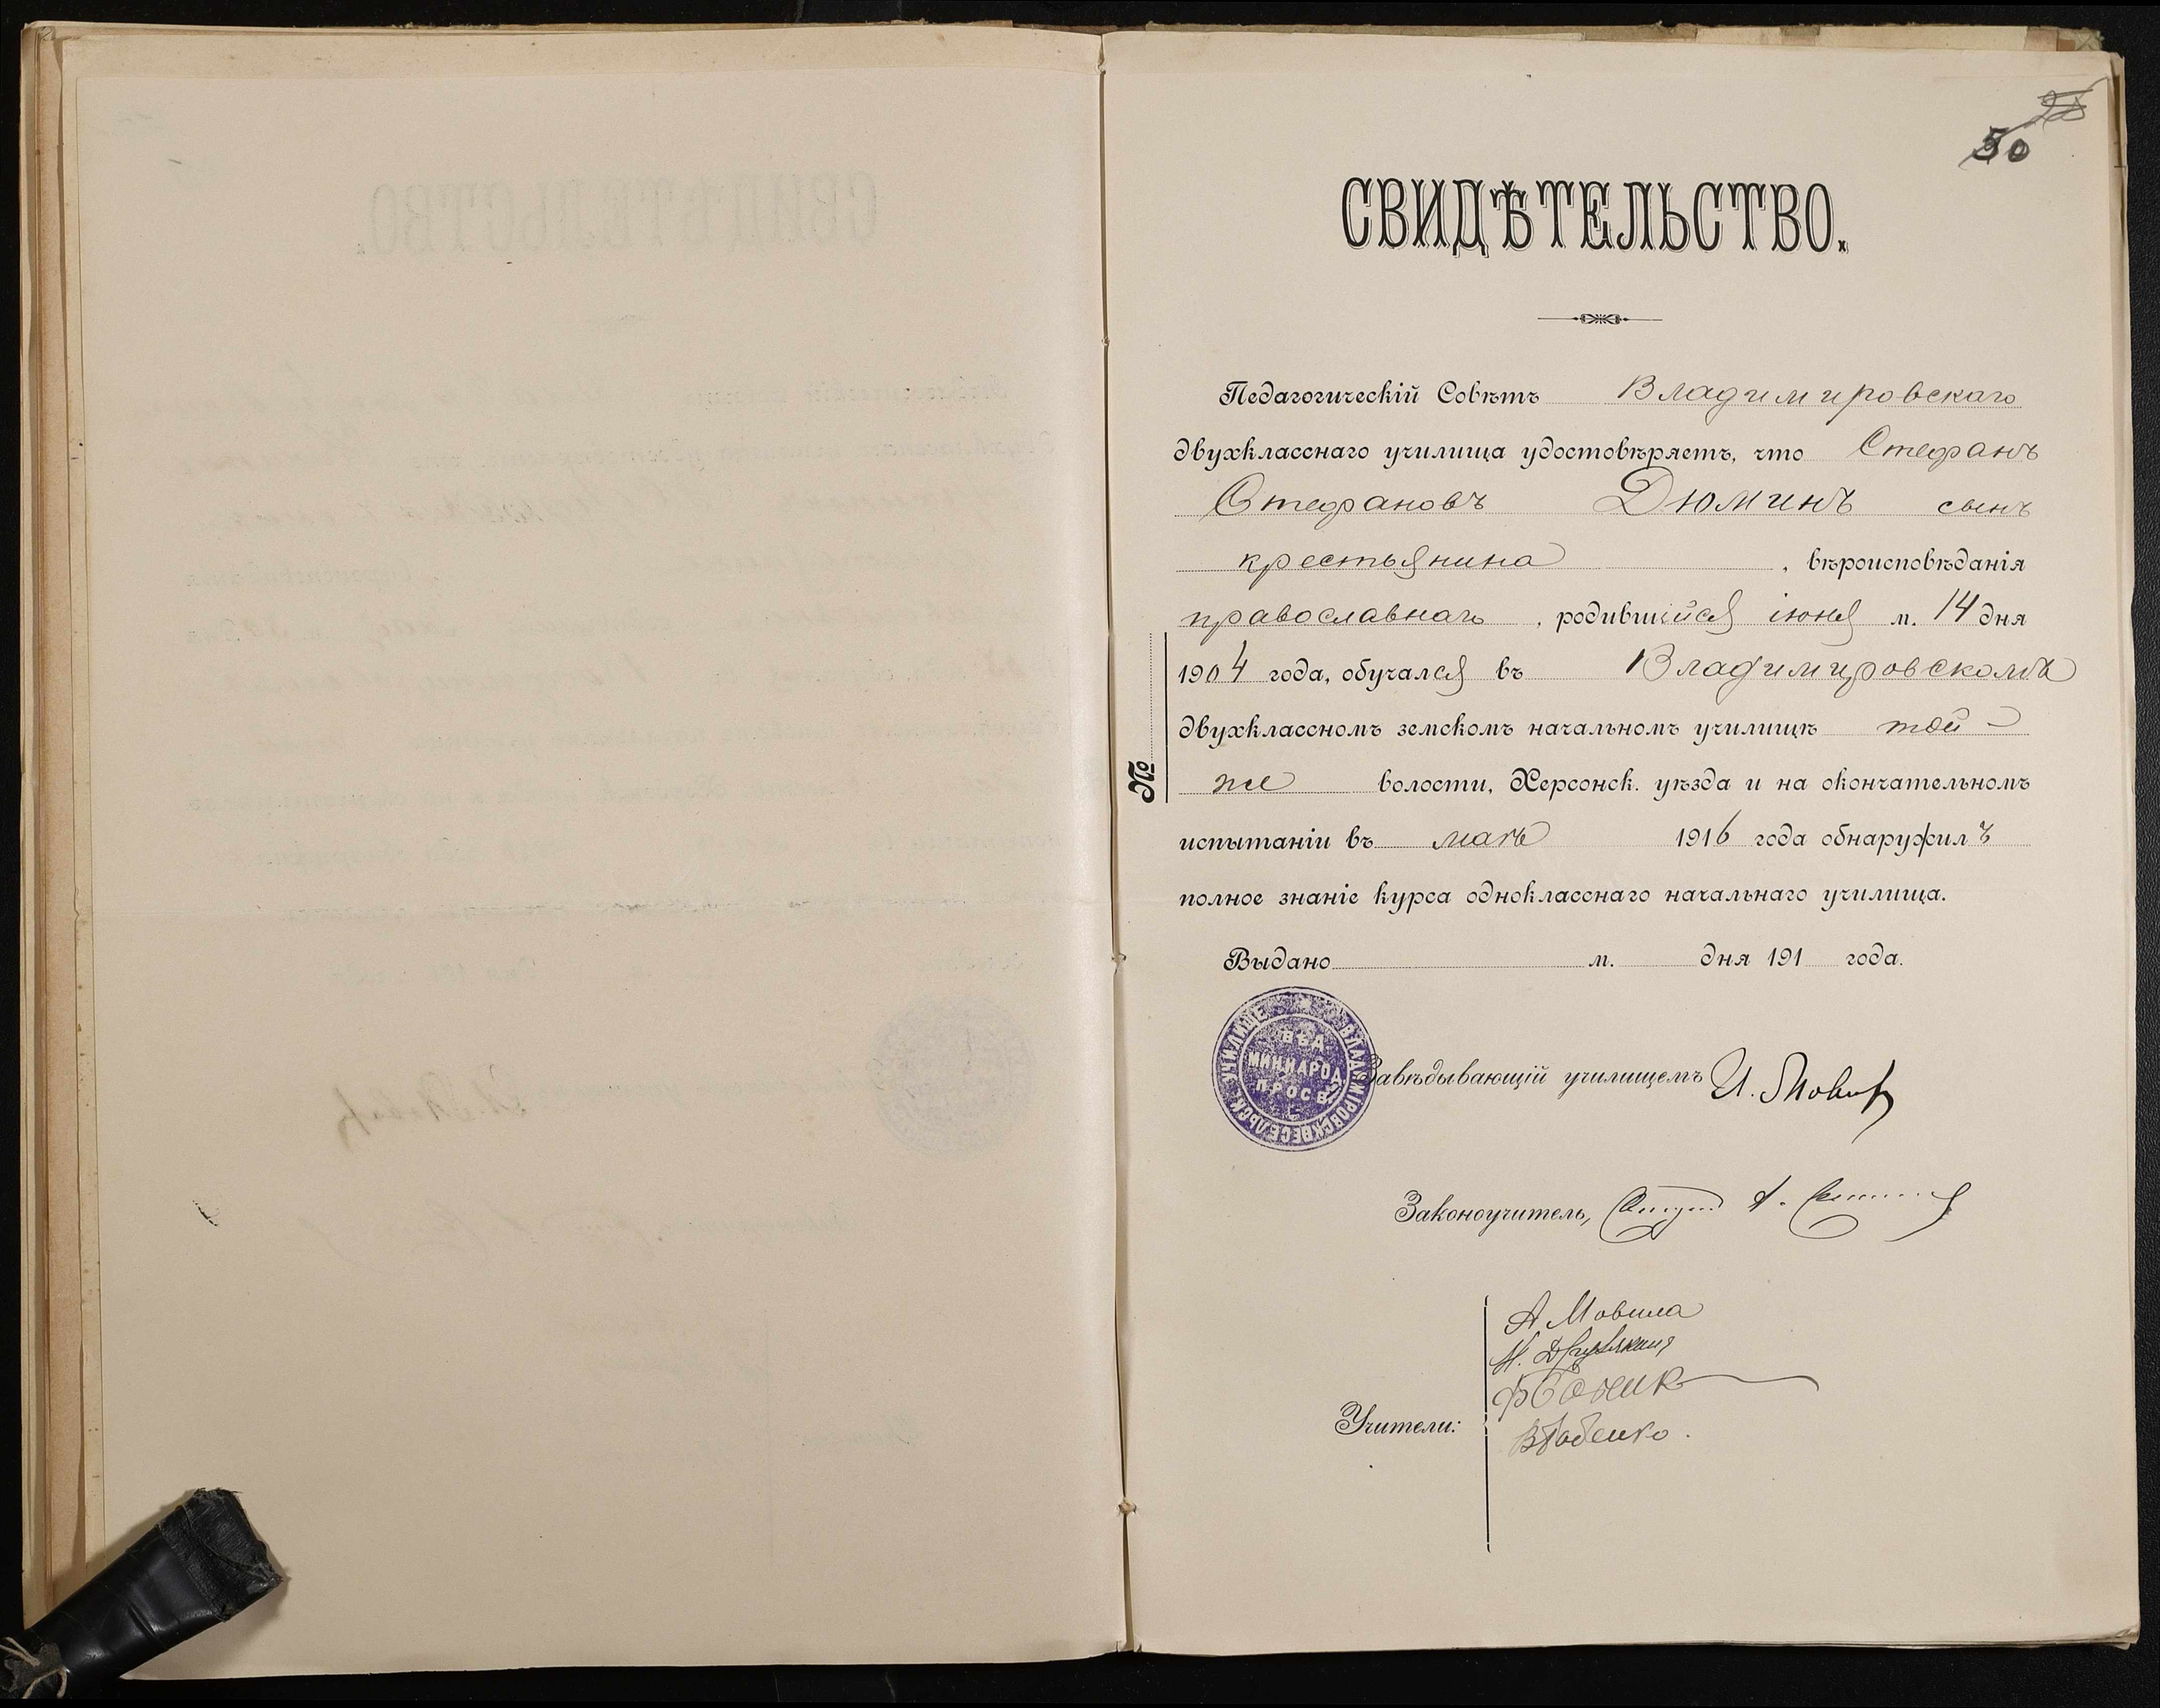 50
СВИДѢТЕЛЬСТВО.
Педагогическій Совѣтъ Владимировскаго
двухкласснаго училища удостовѣряетъ, что Стефанъ
Стефановъ Дюминъ сынъ
крестьянина , вѣроисповѣданія
православнаго , родившійся іюня м. 14 дня
1904 года, обучался въ Владимировскомъ
двухклассномъ земскомъ начальномъ училищѣ той-
же волости, Херсонск. уѣзда и на окончательномъ
испытаніи въ маѣ 1916 года обнаружилъ
полное знаніе курса одноклас­снаго начальнаго училища.
№
Выдано м. дня 191 года.
ВѢД.
МИН.НАРОД.
ПРОСВ.
Завѣдывающій училищемъ И.
Законоучитель,
А Мовила
Учители: